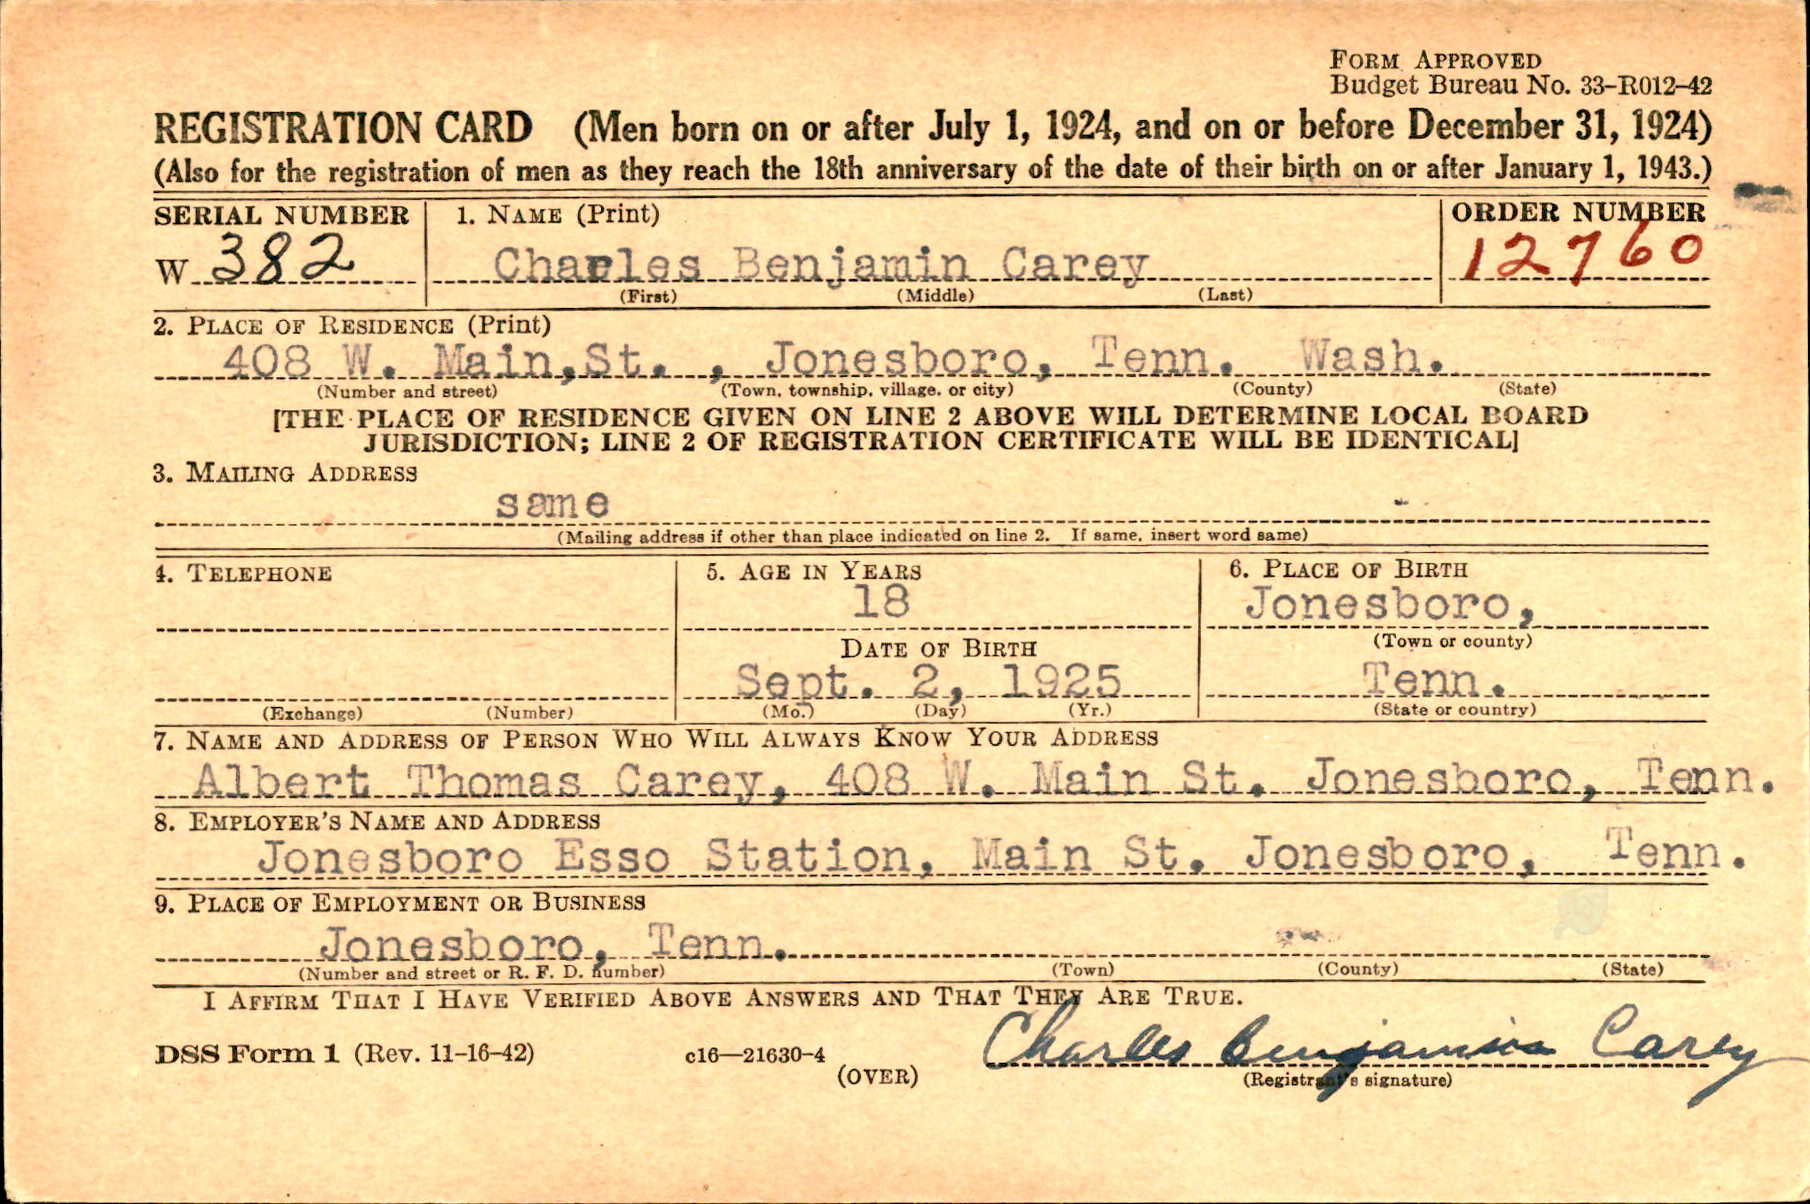 FORM APPROVED
Budget Bureau No. 33-R012-42
REGISTRATION CARD (Men born on or after July 1, 1924, and on or before December 31, 1924)
(Also for the registration of men as they reach the 18th anniversary of the date of their birth on or after January 1, 1943.)
SERIAL NUMBER 1. NAME (Print) ORDER NUMBER
W 382 Charles Benjamin Carey 12760
(First) (Middle) (Last)
2. PLACE OF RESIDENCE (Print)
408 W. Main,St. , Jonesboro, Tenn. Wash.
(Number and street) (Town, township, village, or city) (County) (State)
[THE PLACE OF RESIDENCE GIVEN ON LINE 2 ABOVE WILL DETERMINE LOCAL BOARD
JURISDICTION; LINE 2 OF REGISTRATION CERTIFICATE WILL BE IDENTICAL]
3. MAILING ADDRESS
same
(Mailing address if other than place indicated on line 2. If same, insert word same)
4. TELEPHONE 5. AGE IN YEARS 6. PLACE OF BIRTH
18 Jonesboro,
DATE OF BIRTH (Town or county)
Sept. 2, 1925 Tenn.
(Exchange) (Number) (Mo.) (Day) (Yr.) (State or country)
7. NAME AND ADDRESS OF PERSON WHO WILL ALWAYS KNOW YOUR ADDRESS
Albert Thomas Carey, 408 W. Main St. Jonesboro, Tenn.
8. EMPLOYER'S NAME AND ADDRESS
Jonesboro Esso Station, Main St. Jonesboro, Tenn.
9. PLACE OF EMPLOYMENT OR BUSINESS
Jonesboro, Tenn.
(Number and street or R. F. D. number) (Town) (County) (State)
I AFFIRM THAT I HAVE VERIFIED ABOVE ANSWERS AND THAT THEY ARE TRUE.
DSS Form 1 (Rev. 11-16-42) c16—21630-4 Charles Benjamin Carey
(OVER) (Registrant's signature)